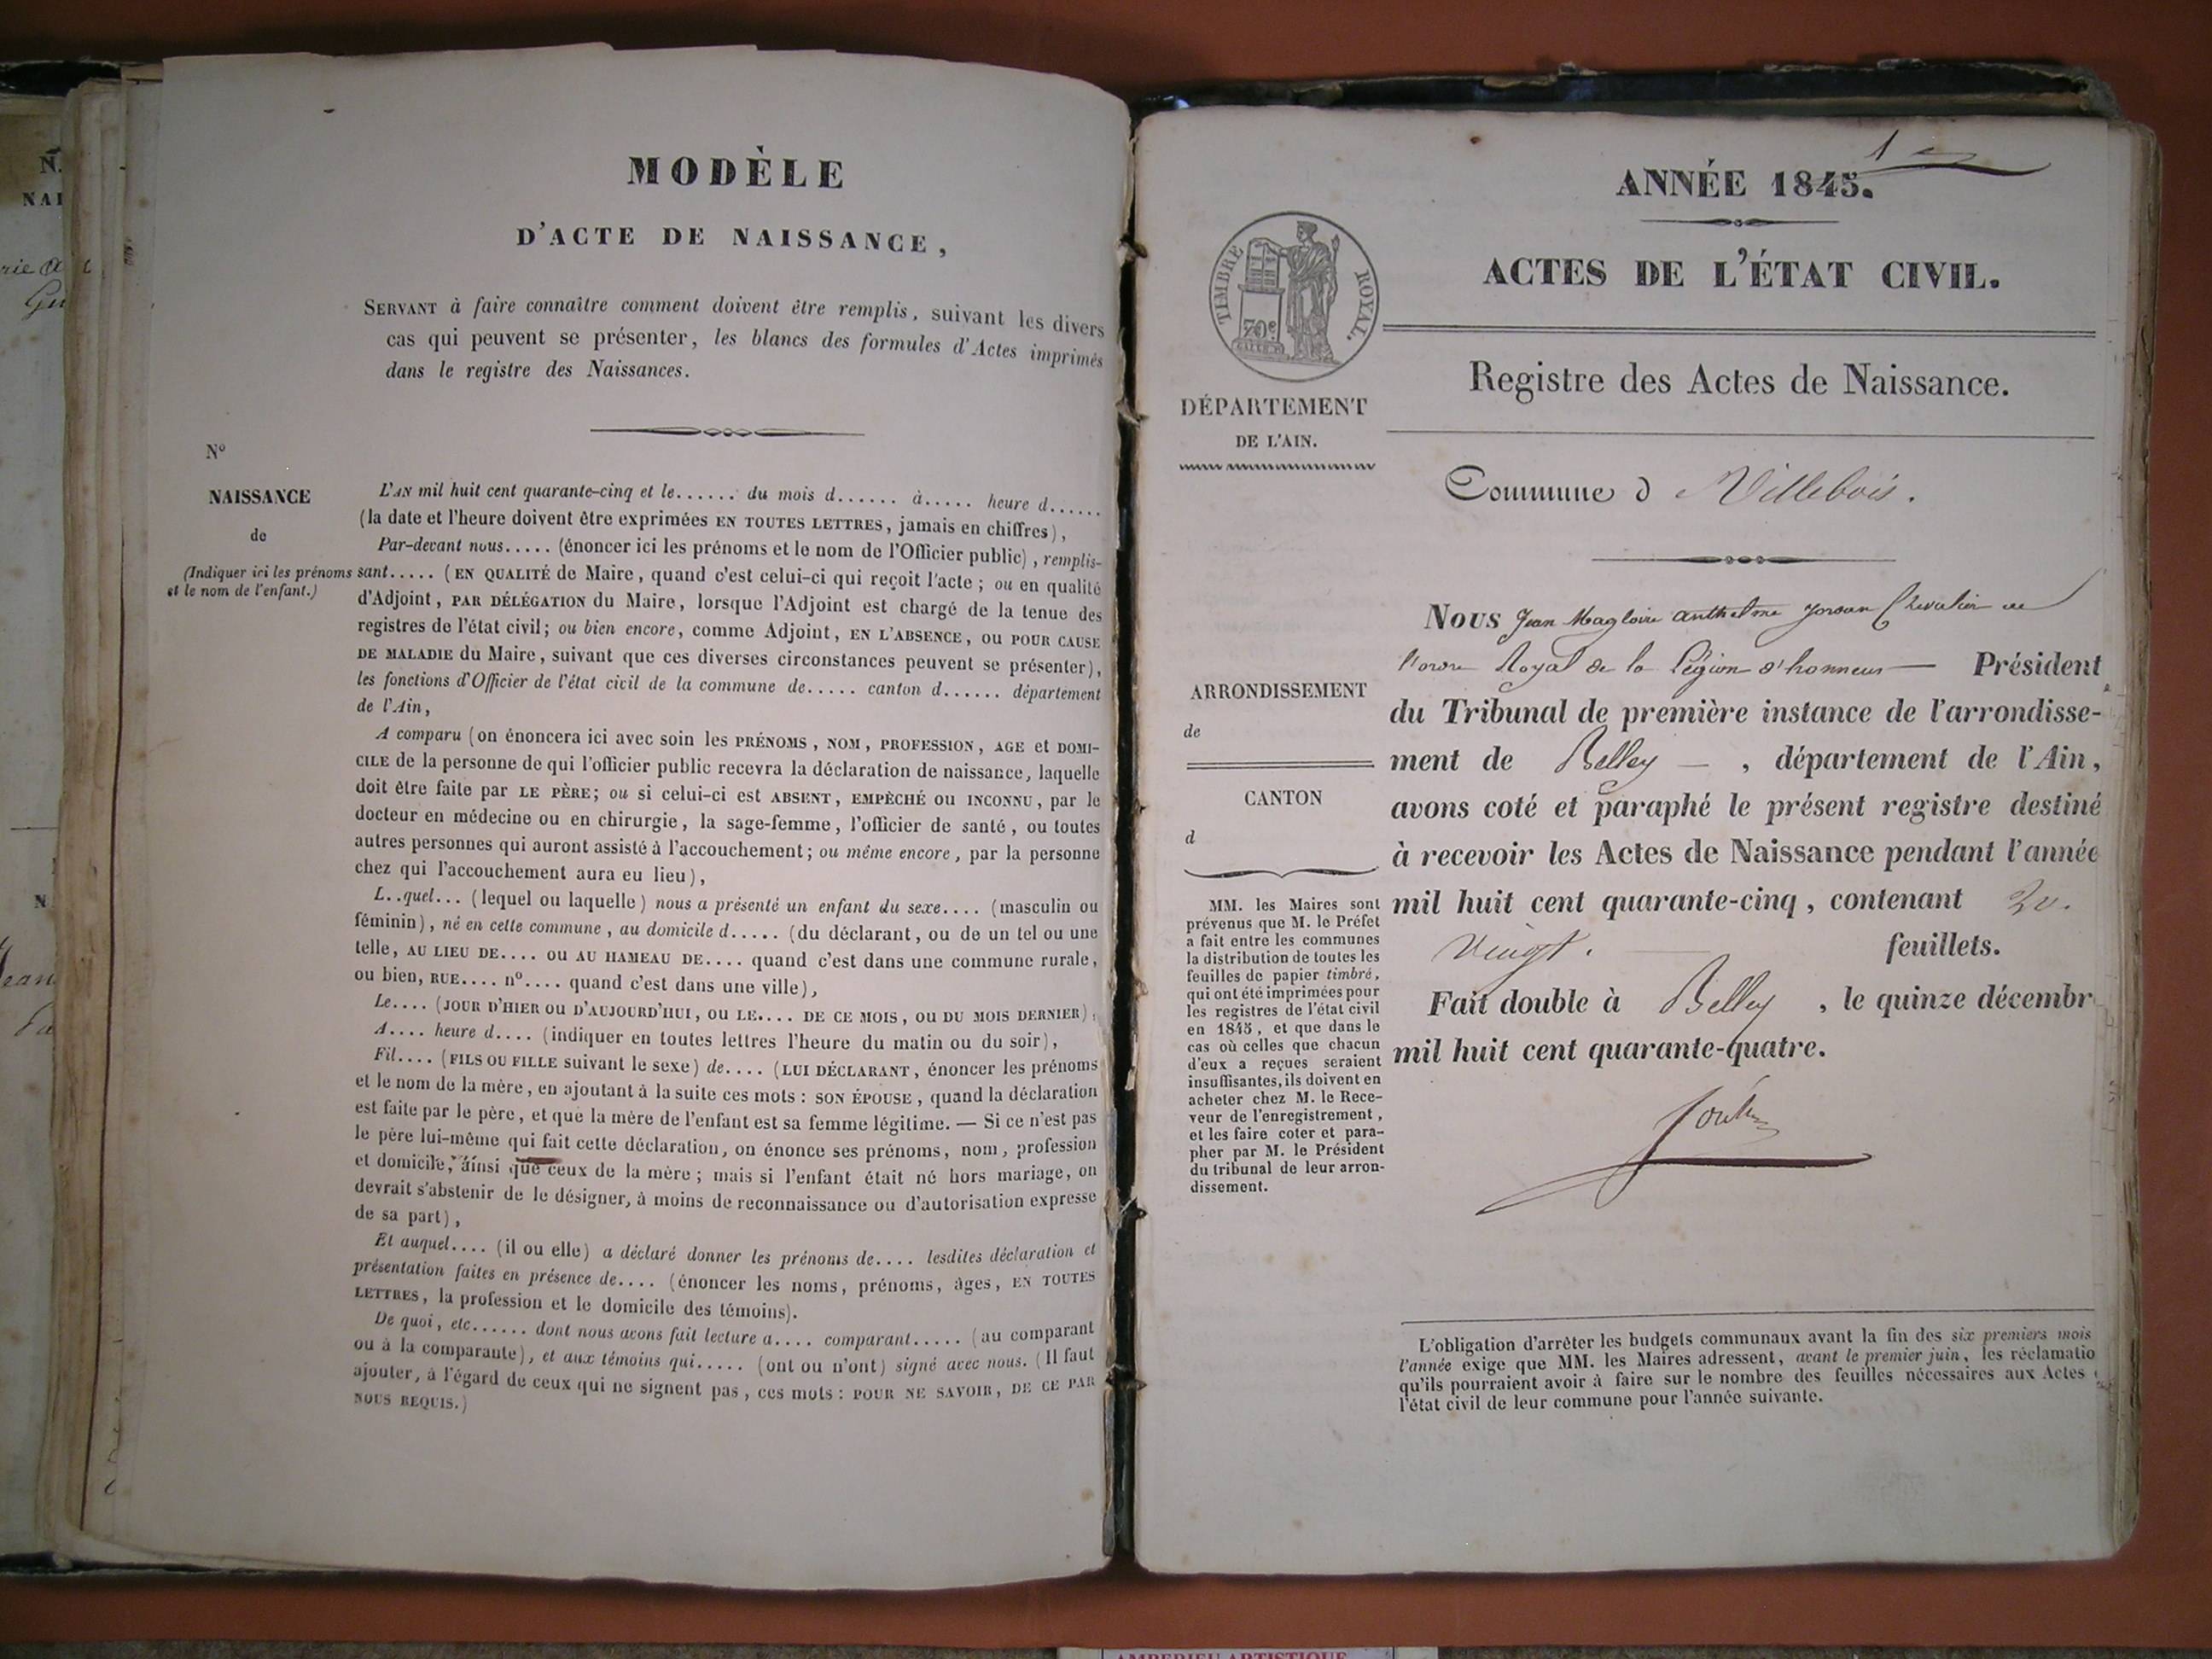 N.
NAI
rie a
Gu
N
Jean
MODÈLE
D'ACTE DE NAISSANCE,
SERVANT à faire connaître comment doivent être remplis, suivant les divers
cas qui peuvent se présenter, les blancs des formules d'Actes imprimés
dans le registre des Naissances.
N°
NAISSANCE
de
(Indiquer ici les prénoms
et le nom de l'enfant.)
L'AN mil huit cent quarante-cinq et le...... du mois d...... à..... heure d......
(la date et l'heure doivent être exprimées EN TOUTES LETTRES, jamais en chiffres),
Par-devant nous..... (énoncer ici les prénoms et le nom de l'Officier public), remplis-
sant..... (EN QUALITÉ de Maire, quand c'est celui-ci qui reçoit l'acte; ou en qualité
d'Adjoint, PAR DÉLÉGATION du Maire, lorsque l'Adjoint est chargé de la tenue des
registres de l'état civil; ou bien encore, comme Adjoint, EN L'ABSENCE, OU POUR CAUSE
DE MALADIE du Maire, suivant que ces diverses circonstances peuvent se présenter),
les fonctions d'Officier de l'état civil de la commune de..... canton d...... département
de l'Ain,
A comparu (on énoncera ici avec soin les PRÉNOMS, NOM, PROFESSION, AGE et DOMI-
CILE de la personne de qui l'officier public recevra la déclaration de naissance, laquelle
doit être faite par LE PÈRE; ou si celui-ci est ABSENT, EMPÊCHÉ OU INCONNU, par le
docteur en médecine ou en chirurgie, la sage-femme, l'officier de santé, ou toutes
autres personnes qui auront assisté à l'accouchement; ou même encore, par la personne
chez qui l'accouchement aura eu lieu),
L..quel... (lequel ou laquelle) nous a présenté un enfant du sexe.... (masculin ou
féminin), né en cette commune, au domicile d..... (du déclarant, ou de un tel ou une
telle, AU LIEU DE.... OU AU HAMEAU DE.... quand c'est dans une commune rurale,
ou bien, RUE.... n°.... quand c'est dans une ville),
Le.... (JOUR D'HIER OU D'AUJOURD'HUI, OU LE.... DE CE MOIS, OU DU MOIS DERNIER),
A.... heure d.... (indiquer en toutes lettres l'heure du matin ou du soir),
Fil.... (FILS OU FILLE suivant le sexe) de.... (LUI DÉCLARANT, énoncer les prénoms
et le nom de la mère, en ajoutant à la suite ces mots: SON ÉPOUSE, quand la déclaration
est faite par le père, et que la mère de l'enfant est sa femme légitime. — Si ce n'est pas
le père lui-même qui fait cette déclaration, on énonce ses prénoms, nom, profession
et domicile, ainsi que ceux de la mère; mais si l'enfant était né hors mariage, on
devrait s'abstenir de le désigner, à moins de reconnaissance ou d'autorisation expresse
de sa part),
Et auquel.... (il ou elle) a déclaré donner les prénoms de.... lesdites déclaration et
présentation faites en présence de.... (énoncer les noms, prénoms, âges, EN TOUTES
LETTRES, la profession et le domicile des témoins).
De quoi, etc...... dont nous avons fait lecture a.... comparant..... (au comparant
ou à la comparante), et aux témoins qui..... (ont ou n'ont) signé avec nous. (Il faut
ajouter, à l'égard de ceux qui ne signent pas, ces mots: POUR NE SAVOIR, DE CE PAR
NOUS REQUIS.)
1er
ANNÉE 1845.
ACTES DE L'ÉTAT CIVIL.
Registre des Actes de Naissance.
TIMBRE ROYAL.
70c
DÉPARTEMENT
DE L'AIN.
ARRONDISSEMENT
de
CANTON
d
MM. les Maires sont
prévenus que M. le Préfet
a fait entre les communes
la distribution de toutes les
feuilles de papier timbré,
qui ont été imprimées pour
les registres de l'état civil
en 1845, et que dans le
cas où celles que chacun
d'eux a reçues seraient
insuffisantes, ils doivent en
acheter chez M. le Rece-
veur de l'enregistrement,
et les faire coter et para-
pher par M. le Président
du tribunal de leur arron-
dissement.
Commune d Villebois.
Nous Jean Magloire anthelme Jordan Chevalier de
l'ordre Royal de la Légion d'honneur — Président
du Tribunal de première instance de l'arrondisse-
ment de Belley —, département de l'Ain,
avons coté et paraphé le présent registre destiné
à recevoir les Actes de Naissance pendant l'année
mil huit cent quarante-cinq, contenant 20.
Vingt. — feuillets.
Fait double à Belley, le quinze décembr
mil huit cent quarante-quatre.
L'obligation d'arrêter les budgets communaux avant la fin des six premiers mois
l'année exige que MM. les Maires adressent, avant le premier juin, les réclamatio
qu'ils pourraient avoir à faire sur le nombre des feuilles nécessaires aux Actes
l'état civil de leur commune pour l'année suivante.
AMBERIEU ARTISTIQUE